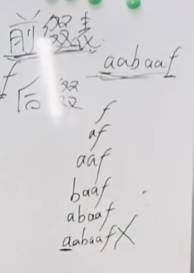 前缀表
aabaaf
f 后缀
f
af
aaf
baaf
abaaf
aabaaf X